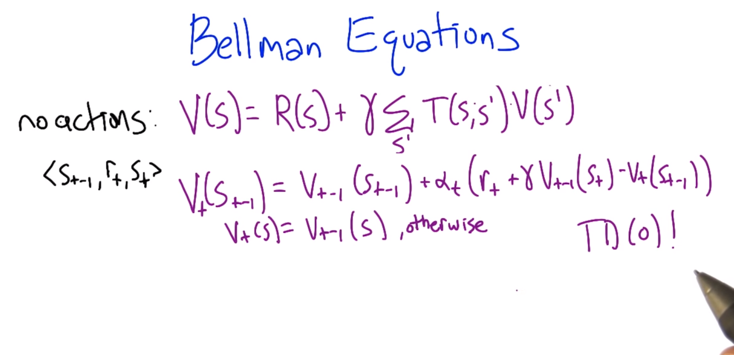 Bellman Equations
no actions: V(s) = R(s) + γ Σ_s' T(s,s') V(s')
<s_{t-1}, r_t, s_t>
V_t(s_{t-1}) = V_{t-1}(s_{t-1}) + α_t (r_t + γ V_{t-1}(s_t) - V_t(s_{t-1}))
V_t(s) = V_{t-1}(s), otherwise
TD(0)!